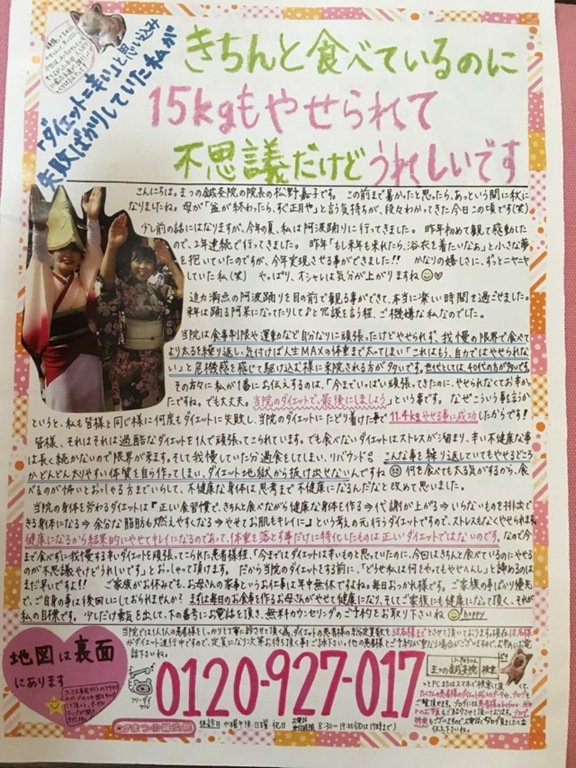 「ダイエット＝辛い」と思い込み
失敗ばかりしていた私が
きちんと食べているのに
15kgもやせられて
不思議だけどうれしいです
こんにちは。まつの鍼灸院の院長の松野嘉子です。この前まで暑かったと思ったら、あっという間に秋に
なりましたね。母が「盆が終わったら、すぐ正月や」と言う気持ちが、段々わかってきた今日この頃です(笑)
少し前の話にはなりますが、今年の夏、私は阿波踊りに行ってきました。昨年初めて観て感動した
ので、2年連続で行ってきました。昨年「もし来年も来れたら、浴衣も着たいなぁ」と小さな夢
を抱いていたのですが、今年実現させる事ができました!!かなりの嬉しさに、ずっとニヤニヤ
していた私(笑) やっぱり、オシャレは気分が上がりますね
迫力満点の阿波踊りを目の前で観る事ができて、本当に楽しい時間を過ごせました。
来年は踊る阿呆になってたりして♪と冗談を言う程、ご機嫌な私なのでした。
当院は食事制限や運動など自分なりに頑張ったけどやせられず、我慢の限界で食べて
より太るを繰り返し、気付けば人生MAXの体重まで太ってしまい「これはもう、自力ではやせられな
い」と危機感を感じて駆け込む様に来院される方が多いです。世代としては40代の方が多いです。
その方々に私が1番にお伝えするのは、「今までいっぱい頑張ってきたのに、やせられなくてお辛かっ
たですね。でも大丈夫。当院のダイエットで、最後にしましょう」という事です。なぜこういう事を言うか
というと、私も皆様と同じ様に何度もダイエットに失敗し、当院のダイエットにたどり着けた事で11.4kgやせる事に成功したからです!
皆様、それはそれは過酷なダイエットを1人で頑張ってこられています。でも食べないダイエットはストレスがつ溜まり、辛い不健康な事
は長く続かないので限界が来ます。そして我慢していた分過食をしてしまい、リバウンド。こんな事を繰り返していてもやせるどころ
かどんどん太りやすい体質を自ら作ってしまい、ダイエット地獄から抜け出せないんですね 何を食べても太る気がするから、食
べるのが怖いとおっしゃる方までいらして、不健康な身体は思考まで不健康になるんだなと改めて思いました。
当院の身体を労わるダイエットは「正しい食習慣で、きちんと食べながら健康な身体を作る→代謝が上がる→いらないものを排出で
きる身体になる→余分な脂肪も燃えやすくなる→やせてお肌もキレイに」という考えの元行うダイエットですので、ストレスもなくやせられます。
健康になるから結果的にやせてキレイになるのであって、体重を落とす事だけに特化したものは正しいダイエットではないのです。なので今
まで食べずに我慢する辛いダイエットを頑張ってこられた患者様程、「今まではダイエットは辛いものと思っていたのに、今回はきちんと食べているのにやせる
のが不思議やけどうれしいです」とおっしゃって頂けます。だから当院のダイエットをする前に、「どうせ私は何をやってもやせへんし」と諦めるのは
まだ早いですよ!! ご家族がお休みでも、お母さんの家事というお仕事は年中無休ですよね。毎日おつかれ様です。ご家族の事ばかり優先
で、ご自身の事は後回しにしておられませんか? まずは毎日のお食事を作るお母さんがやせて健康になり、そしてご家族にも健康になって頂く、それが
私の目標です。少しだけ勇気を出して、下の番号にお電話を頂き、無料カウンセリングのご予約をお取り下さいね happy
地図は裏面
にあります
0120-927-017
フリーダイヤル
まつの鍼灸院
休診日 水曜午後・日曜・祝日
まつの鍼灸院 検索